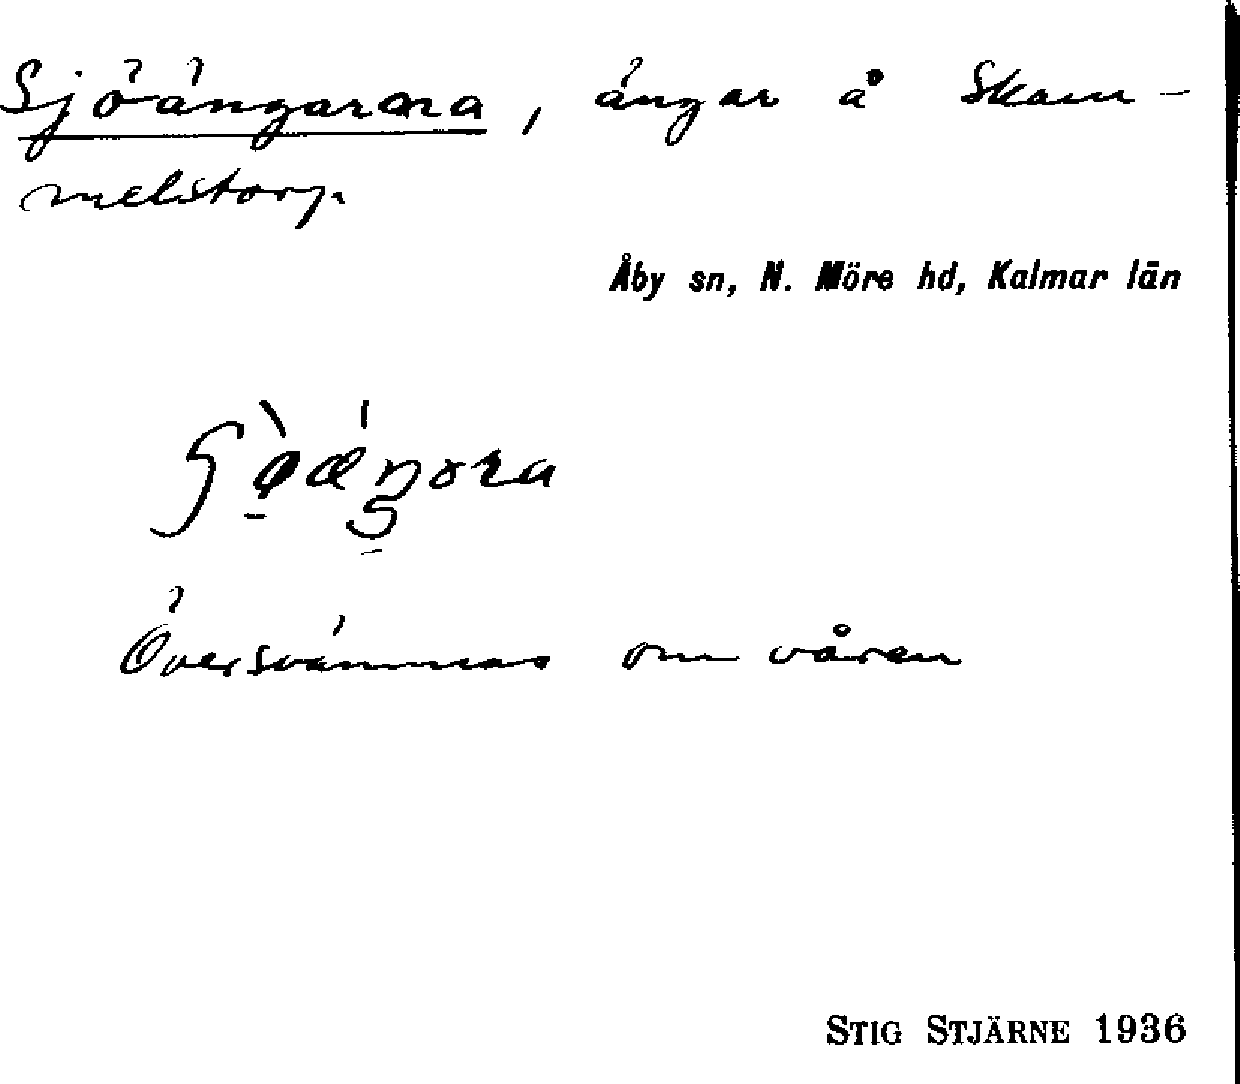 Sjöängarna, ängar å Skam-
melstorp.
Åby sn, N. Möre hd, Kalmar län
Översvämmas om våren
STIG STJÄRNE 1936